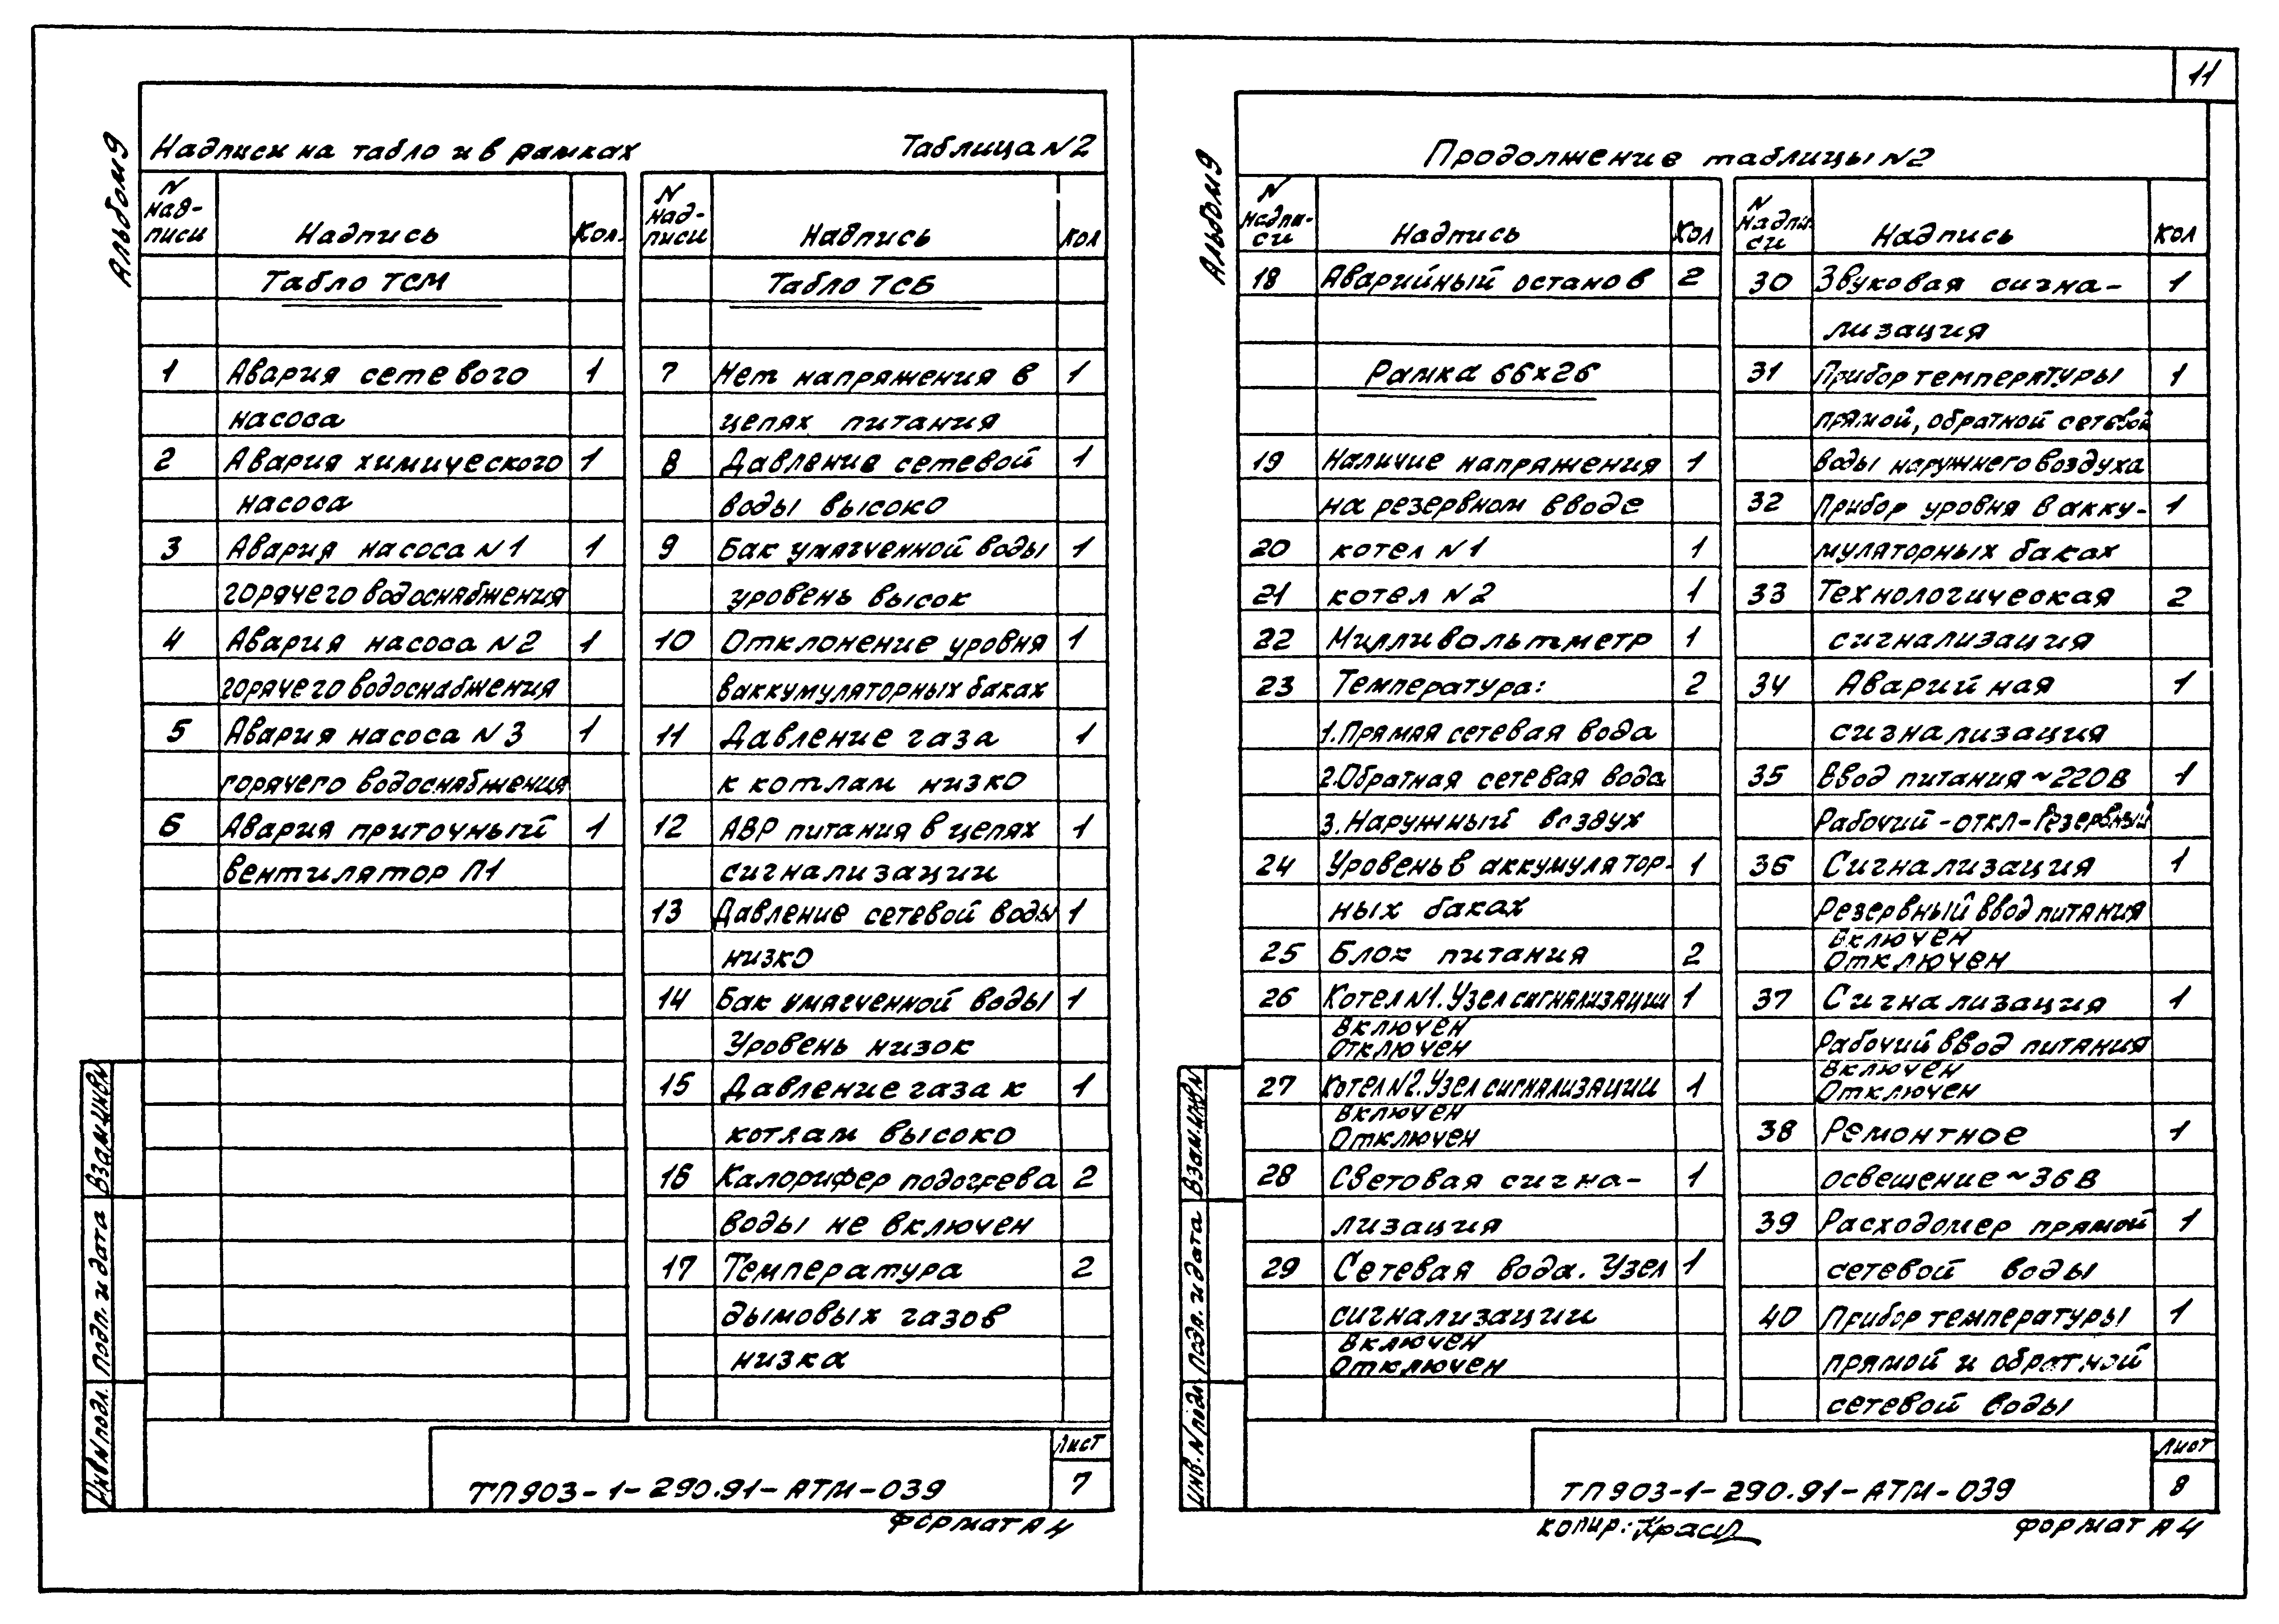 11
Альбом 9
Надписи на табло и в рамках Таблица N2
N надписи Надпись Кол.
Табло ТСМ
1 Авария сетевого 1
насоса
2 Авария химического 1
насоса
3 Авария насоса N1 1
горячего водоснабжения
4 Авария насоса N2 1
горячего водоснабжения
5 Авария насоса N3 1
горячего водоснабжения
6 Авария приточный 1
вентилятор П1
N надписи Надпись Кол
Табло ТСБ
7 Нет напряжения в 1
цепях питания
8 Давление сетевой 1
воды высоко
9 Бак умягченной воды 1
уровень высок
10 Отклонение уровня 1
в аккумуляторных баках
11 Давление газа 1
к котлам низко
12 АВР питания в цепях 1
сигнализации
13 Давление сетевой воды 1
низко
14 Бак умягченной воды 1
Уровень низок
15 Давление газа к 1
котлам высоко
16 Калорифер подогрева 2
воды не включен
17 Температура 2
дымовых газов
низка
Инв N подл. Подп. и дата Взам инв N
ТП903-1-290.91-АТМ-039
Лист
7
Формат А4
Альбом 9
Продолжение таблицы N2
N надписи Надпись Кол
18 Аварийный останов 2
Рамка 66х26
19 Наличие напряжения 1
на резервном вводе
20 котел N1 1
21 котел N2 1
22 Милливольтметр 1
23 Температура: 2
1.Прямая сетевая вода
2.Обратная сетевая вода
3.Наружный воздух
24 Уровень в аккумулятор- 1
ных баках
25 Блок питания 2
26 Котел N1. Узел сигнализации 1
Включен
Отключен
27 Котел N2. Узел сигнализации 1
Включен
Отключен
28 Световая сигна- 1
лизация
29 Сетевая вода. Узел 1
сигнализации
Включен
Отключен
N надписи Надпись Кол
30 Звуковая сигна- 1
лизация
31 Прибор температуры 1
прямой, обратной сетевой
воды наружнего воздуха
32 Прибор уровня в акку- 1
муляторных баках
33 Технологическая 2
сигнализация
34 Аварийная 1
сигнализация
35 Ввод питания ~220В 1
Рабочий-откл-Резервный
36 Сигнализация 1
Резервный ввод питания
Включен
Отключен
37 Сигнализация 1
Рабочий ввод питания
Включен
Отключен
38 Ремонтное 1
освещение ~36В
39 Расходомер прямой 1
сетевой воды
40 Прибор температуры 1
прямой и обратной
сетевой воды
Инв. N подл. Подп. и дата Взам. инв N
ТП903-1-290.91-АТМ-039
Лист
8
копир: Формат А4